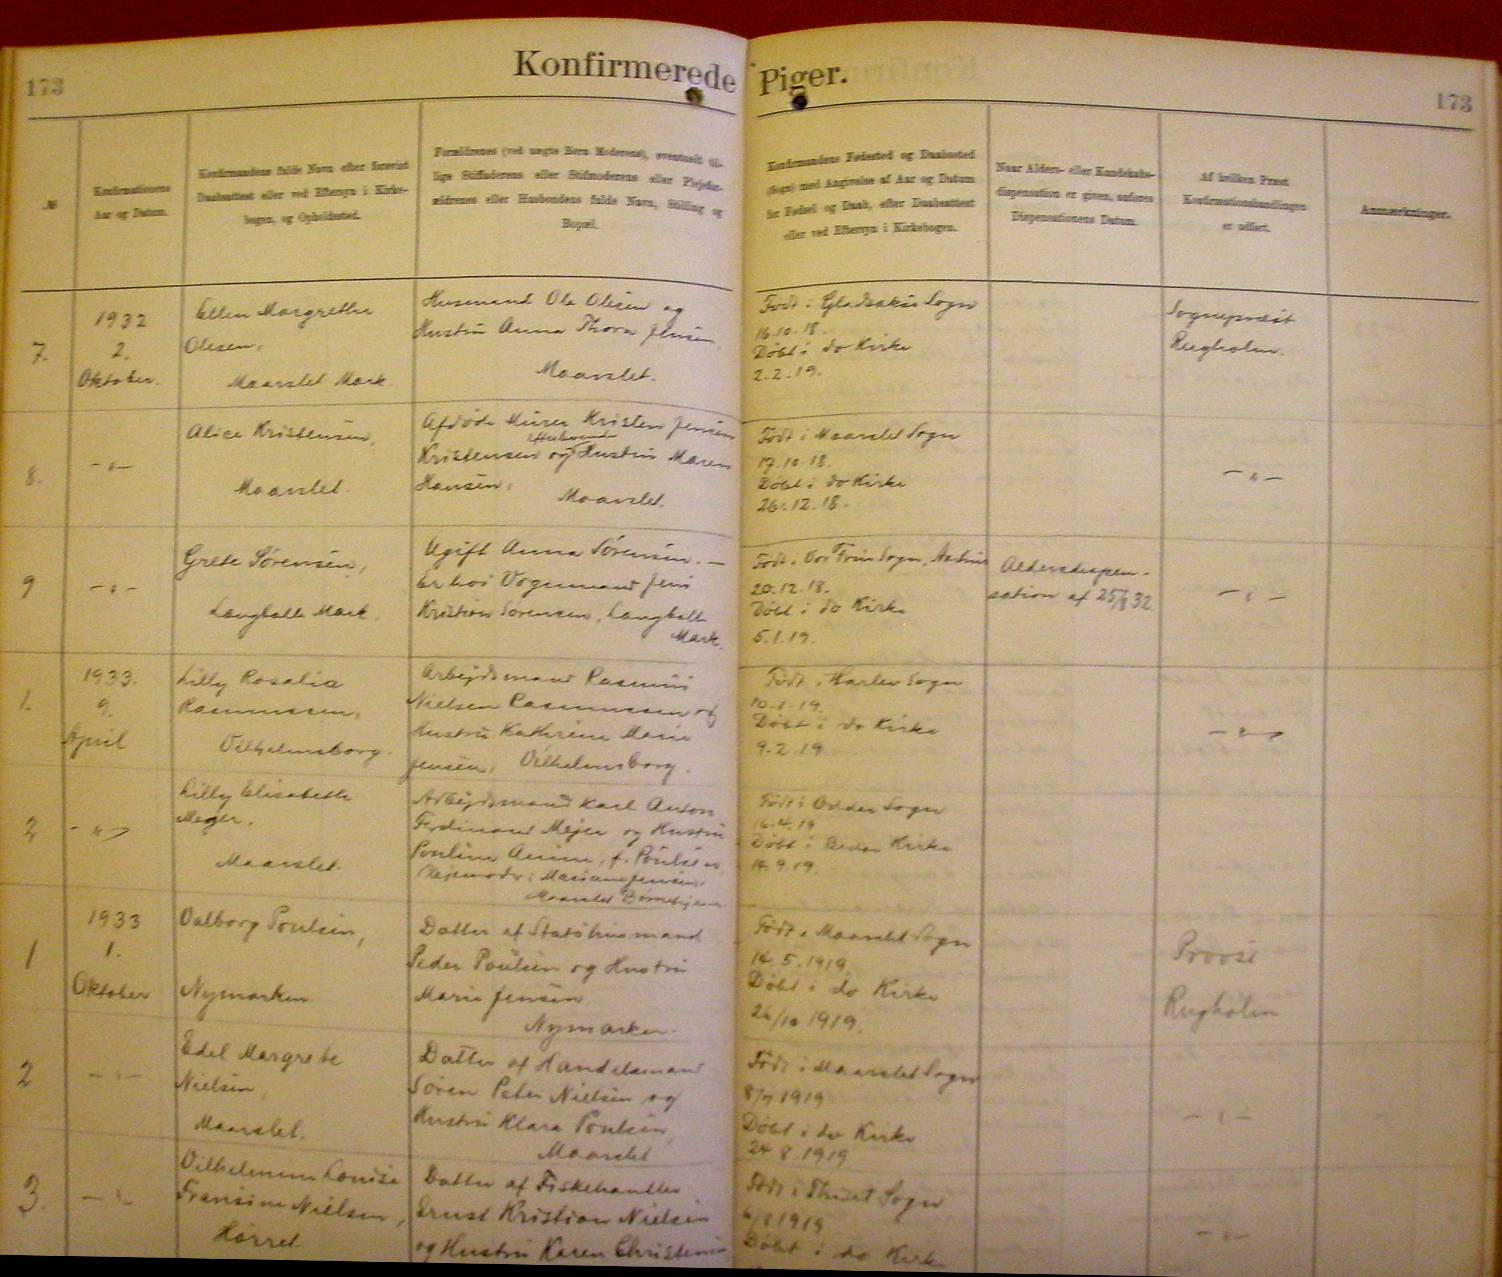 Konfirmerede Piger.
173
173
№
Konfirmationens
Aar og Datum.
Konfirmandens fulde Navn efter forevist
Daabsattest eller ved Eftersyn i Kirke-
bogen, og Opholdssted.
Forældrenes (ved uægte Børn Moderens), eventuelt til-
lige Stiffaderens eller Stifmoderens eller Plejefor-
ældrenes eller Husbondens fulde Navn, Stilling og
Bopæl.
Konfirmandens Fødested og Daabssted
(Sogn) med Angivelse af Aar og Datum
for Fødsel og Daab, efter Daabsattest
eller ved Eftersyn i Kirkebogen.
Naar Alders- eller Kundskabs-
dispensation er given, anføres
Dispensationens Datum.
Af hvilken Præst
Konfirmationshandlingen
er udført.
Anmærkninger.
7.
1932
2.
Oktober.
Ellen Margrethe
Olesen,
Maarslet Mark.
Husmand Ole Olesen og
Hustru Anna Thora Jensen,
Maarslet.
Født i Gladsakse Sogn
16.10.18.
Døbt i do Kirke
2.2.19.
Sognepræst
Rugholm.
8.
-"-
Alice Kristensen,
Maarslet.
Afdøde Murer Kristen Jensen
Kristensen og efterlevende Hustru Maren
Hansen,
Maarslet.
Født i Maarslet Sogn
17.10.18.
Døbt i do Kirke
26.12.18.
-"-
9
-"-
Grete Sørensen,
Langballe Mark.
Ugift Anna Sørensen. —
Er hos Vognmand Jens
Kristian Sørensen, Langballe
Mark.
Født i Vor Frue Sogn, Aarhus
20.12.18.
Døbt i do Kirke
5.1.19.
Aldersdispen-
sation af 25/8 32.
-"-
1.
1933.
9.
April
Lilly Rosalia
Rasmussen,
Vilhelmsborg.
Arbejdsmand Rasmus
Nielsen Rasmussen og
Hustru Kathrine Marie
Jensen, Vilhelmsborg.
Født i Harlev Sogn
10.1.19.
Døbt i do Kirke
9.2.19
-"-
2
-"-
Lilly Elisabeth
Mejer.
Maarslet.
Arbejdsmand Karl Anton
Ferdinand Mejer og Hustru
Pouline, f. Poulsen.
Plejemoder: Mariane Jensen,
Maarslet
Født i Odder Sogn
16.4.19
Døbt i Beder Kirke
14.9.19.
1
1933
1.
Oktober
Valborg Poulsen,
Nymarken
Datter af Statshusmand
Peder Poulsen og Hustru
Marie Jensen
Nymarken.
Født i Maarslet Sogn
14.5.1919
Døbt i do Kirke
26/10 1919.
Provst
Rugholm
2
-"-
Edel Margrete
Nielsen,
Maarslet.
Datter af Handelsmand
Søren Peter Nielsen og
Hustru Klara Poulsen,
Maarslet
Født i Maarslet Sogn
8/7 1919
Døbt i do Kirke
24 8 1919
-"-
3.
-"-
Vilhelmine Louise
Fransine Nielsen,
Hørret
Datter af Fiskehandler
Ernst Kristian Nielsen
og Hustru Karen Christensen
Født i Sogn
6/8 1919
Døbt i do Kirke
-"-